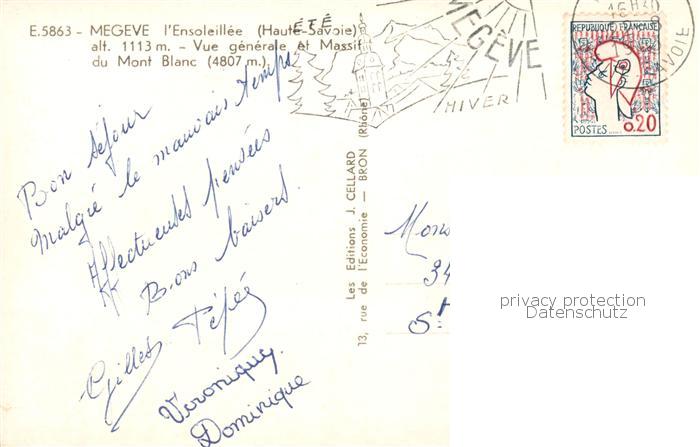 E.5863 - MEGEVE l'Ensoleillée (Haute-Savoie)
alt. 1113 m. - Vue générale et Massif
du Mont Blanc (4807 m.)
ÉTÉ
MEGÈVE
HIVER
15H30
SAVOIE
REPUBLIQUE FRANÇAISE
POSTES
0.20
Bon séjour
malgré le mauvais temps
Affectueuses pensées
Bons baisers.
Gilles Pépée
Véronique.
Dominique
Les Editions J. CELLARD
13, rue de l'Economie - BRON (Rhône)
Mons
34
St
privacy protection
Datenschutz